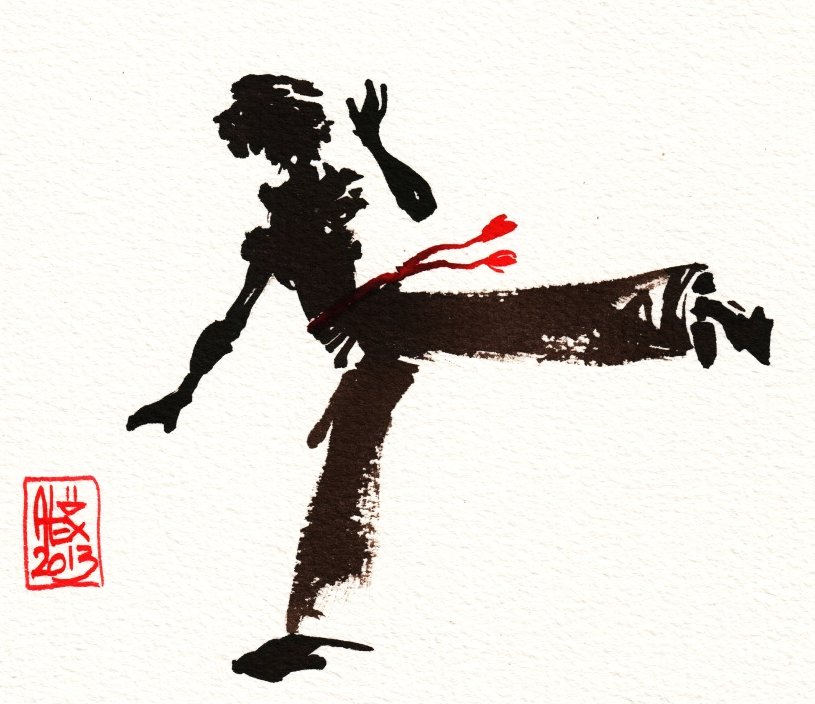 Alex
2013